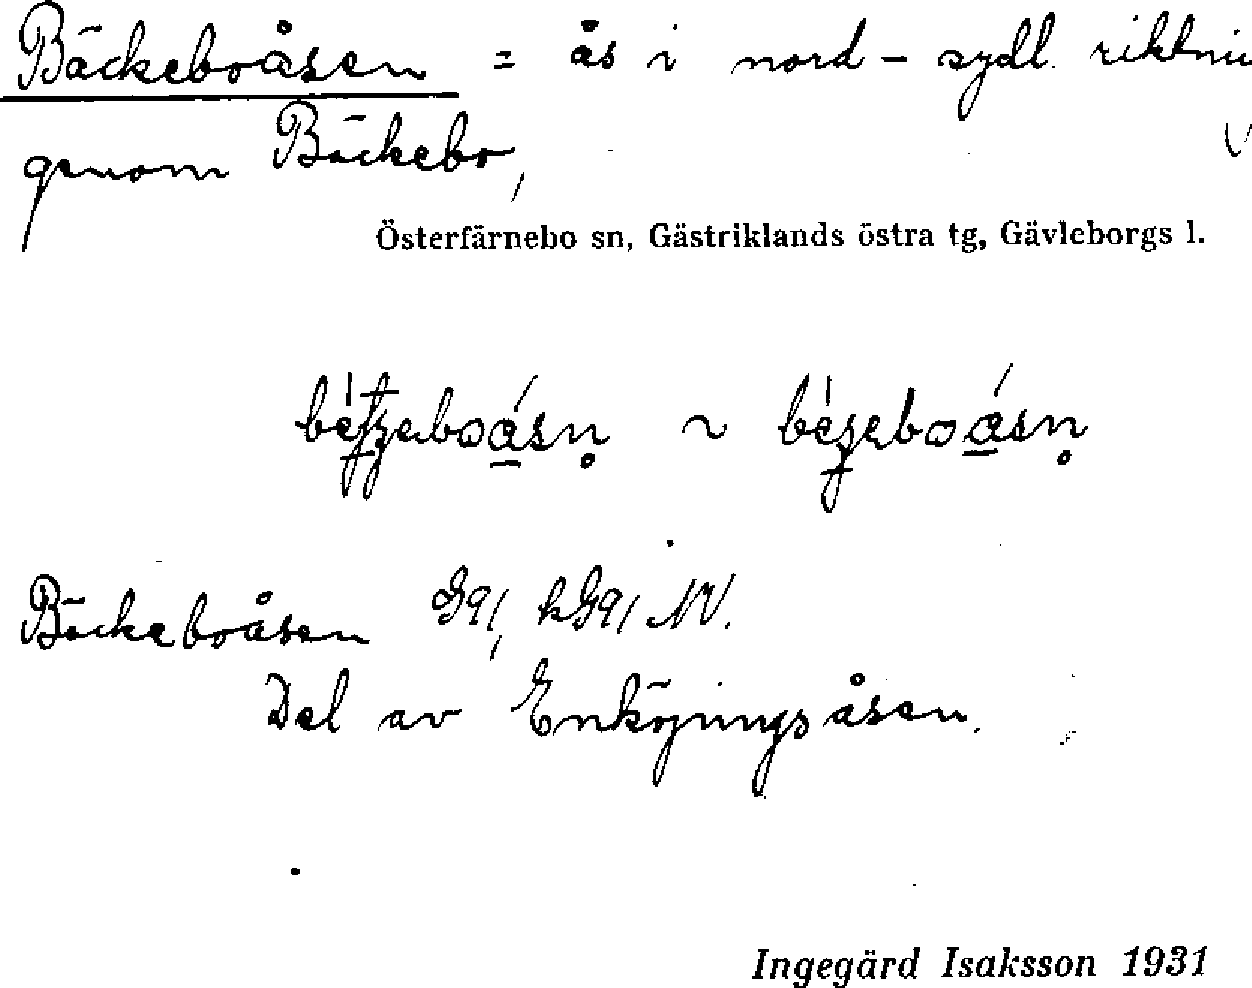 Bäckeboåsen = ås i nord - sydl. riktni
genom Bäckebo,
Österfärnebo sn, Gästriklands östra tg, Gävleborgs l.
~
Bäckeboåsen G91, hG91 NV.
Del av Enköpingsåsen.
Ingegärd Isaksson 1931